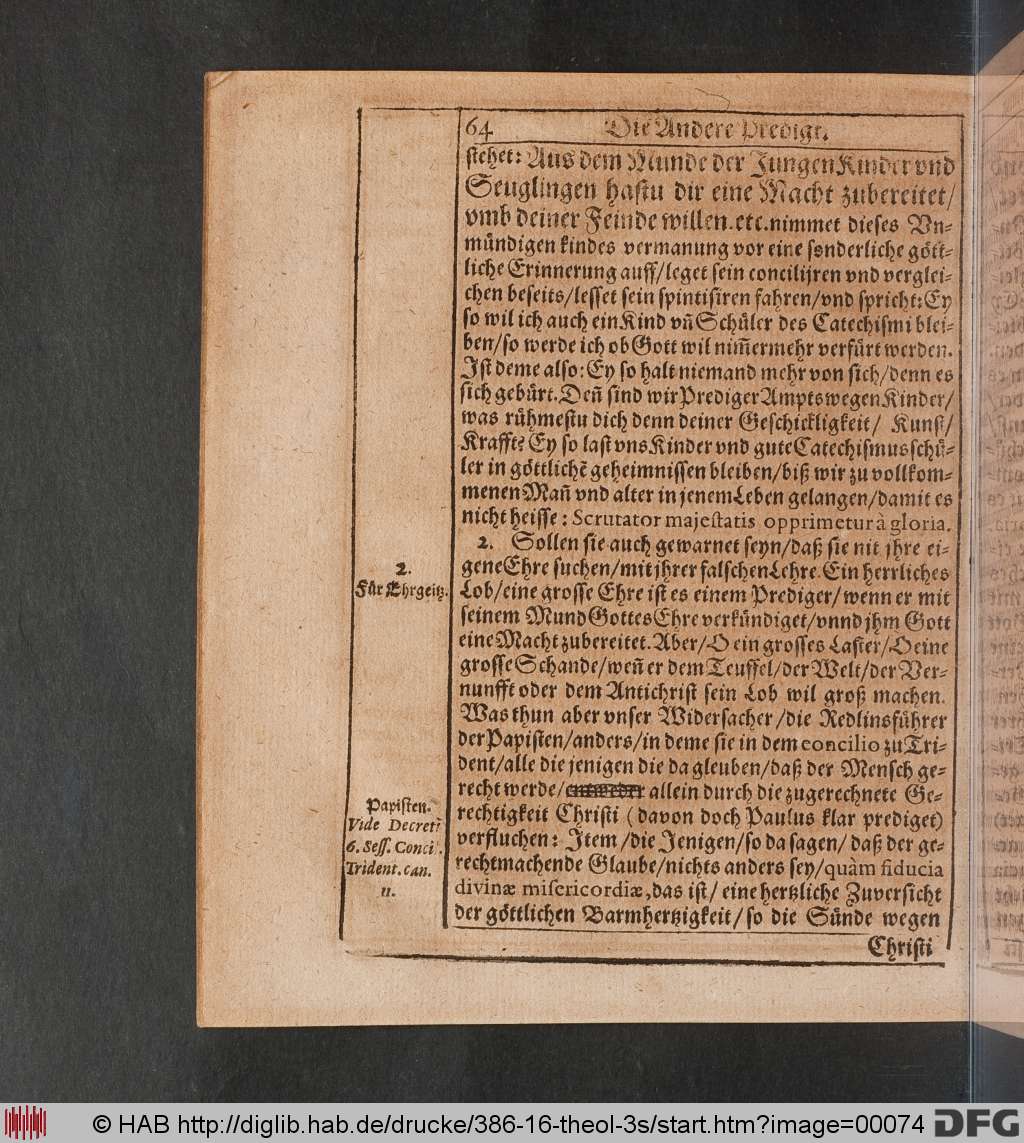 64 Die Andere Predigt.
stehet: Aus dem Munde der Jungen Kinder vnd
Seuglingen hastu dir eine Macht zubereitet/
vmb deiner Feinde willen. etc. nimmet dieses Vn-
mündigen kindes vermanung vor eine sonderliche gött-
liche Erinnerung auff/ leget sein concilijren vnd verglei-
chen beseits/ lesset sein spintisiren fahren/ vnd spricht: Ey
so wil ich auch ein Kind vñ Schüler des Catechismi blei-
ben/ so werde ich ob Gott wil nim̃ermehr verfürt werden.
Ist deme also: Ey so halt niemand mehr von sich/ denn es
sich gebürt. Deñ sind wir Prediger Ampts wegen Kinder/
was rühmestu dich denn deiner Geschickligkeit/ Kunst/
Krafft? Ey so last vns Kinder vnd gute Catechismusschü-
ler in göttlichẽ geheimnissen bleiben/ biß wir zu vollkom-
menen Mañ vnd alter in jenem Leben gelangen/ damit es
nicht heisse: Scrutator majestatis opprimetur à gloria.
2. Sollen sie auch gewarnet seyn/ daß sie nit jhre ei-
gene Ehre suchen/ mit jhrer falschen Lehre. Ein herrliches
Lob/ eine grosse Ehre ist es einem Prediger/ wenn er mit
seinem Mund Gottes Ehre verkündiget/ vnnd jhm Gott
eine Macht zubereitet. Aber/ O ein grosses Laster/ O eine
grosse Schande/ weñ er dem Teuffel/ der Welt/ der Ver-
nunfft oder dem Antichrist sein Lob wil groß machen.
Was thun aber vnser Widersacher/ die Redlinsführer
der Papisten/ anders/ in deme sie in dem concilio zu Tri-
dent/ alle die jenigen die da gleuben/ daß der Mensch ge-
recht werde/ allein durch die zugerechnete Ge-
rechtigkeit Christi (davon doch Paulus klar prediget)
verfluchen: Item/ die Jenigen/ so da sagen/ daß der ge-
rechtmachende Glaube/ nichts anders sey/ quàm fiducia
divinæ misericordiæ, das ist/ eine hertzliche Zuversicht
der göttlichen Barmhertzigkeit/ so die Sünde wegen
Christi
2.
Für Ehrgeitz.
Papisten.
Vide Decret.
6. Sess. Conci.
Trident. can.
11.
© HAB http://diglib.hab.de/drucke/386-16-theol-3s/start.htm?image=00074 DFG